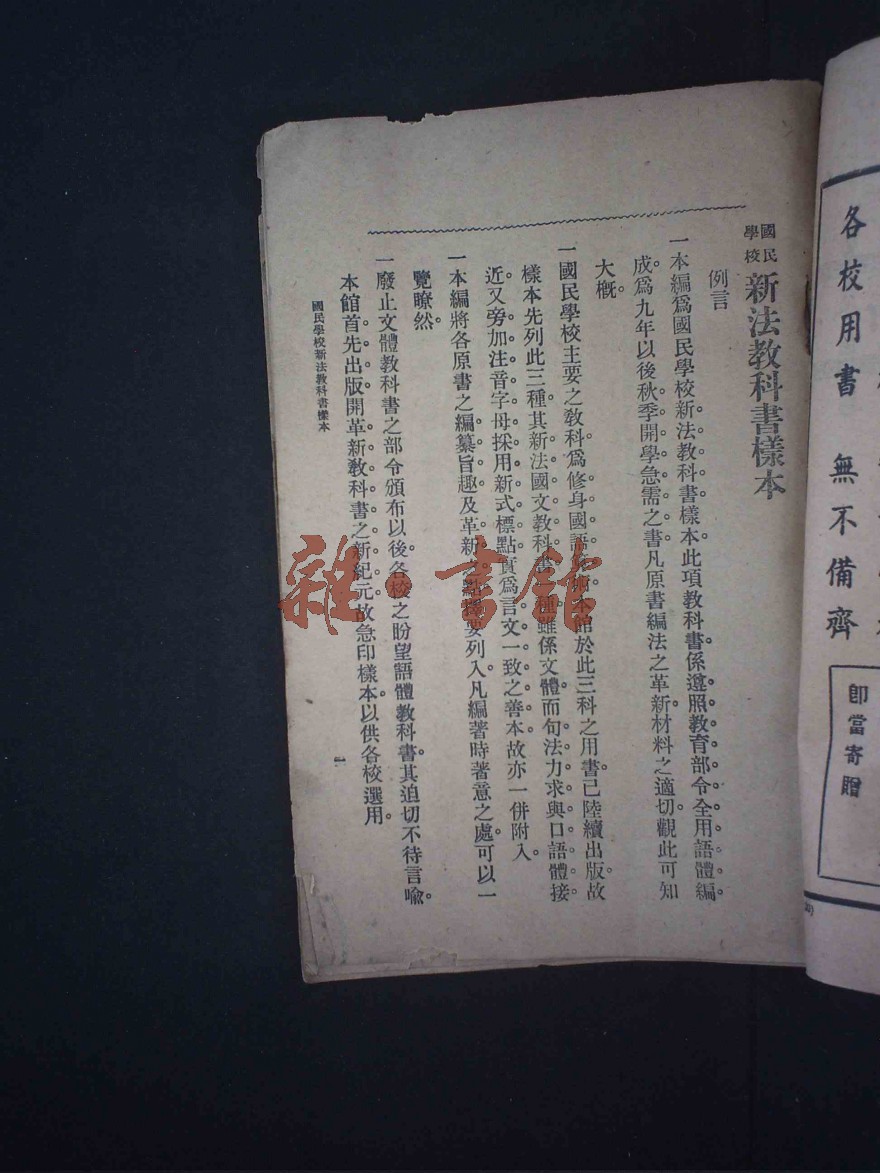 各校用書　無不備齊
卽當寄贈
國民學校
新法教科書樣本
例言
一本編爲國民學校新法教科書樣本。此項教科書係遵照教育部令全用語體編
成。爲九年以後秋季開學急需之書。凡原書編法之革新。材料之適切。觀此可知
大槪。
一國民學校主要之教科。爲修身國語算術。本館於此三科之用書。已陸續出版。故
樣本先列此三種。其新法國文教科書一種。雖係文體。而句法力求與口語體接
近。又旁加注音字母。採用新式標點。實爲言文一致之善本。故亦一併附入。
一本編將各原書之編纂旨趣及革新之點。擇要列入。凡編著時著意之處。可以一
覽瞭然。
一廢止文體教科書之部令頒布以後。各校之盼望語體教科書。其迫切不待言喩。
本館首先出版。開革新教科書之新紀元。故急印樣本。以供各校選用。
國民學校新法教科書樣本
一
雜·書館